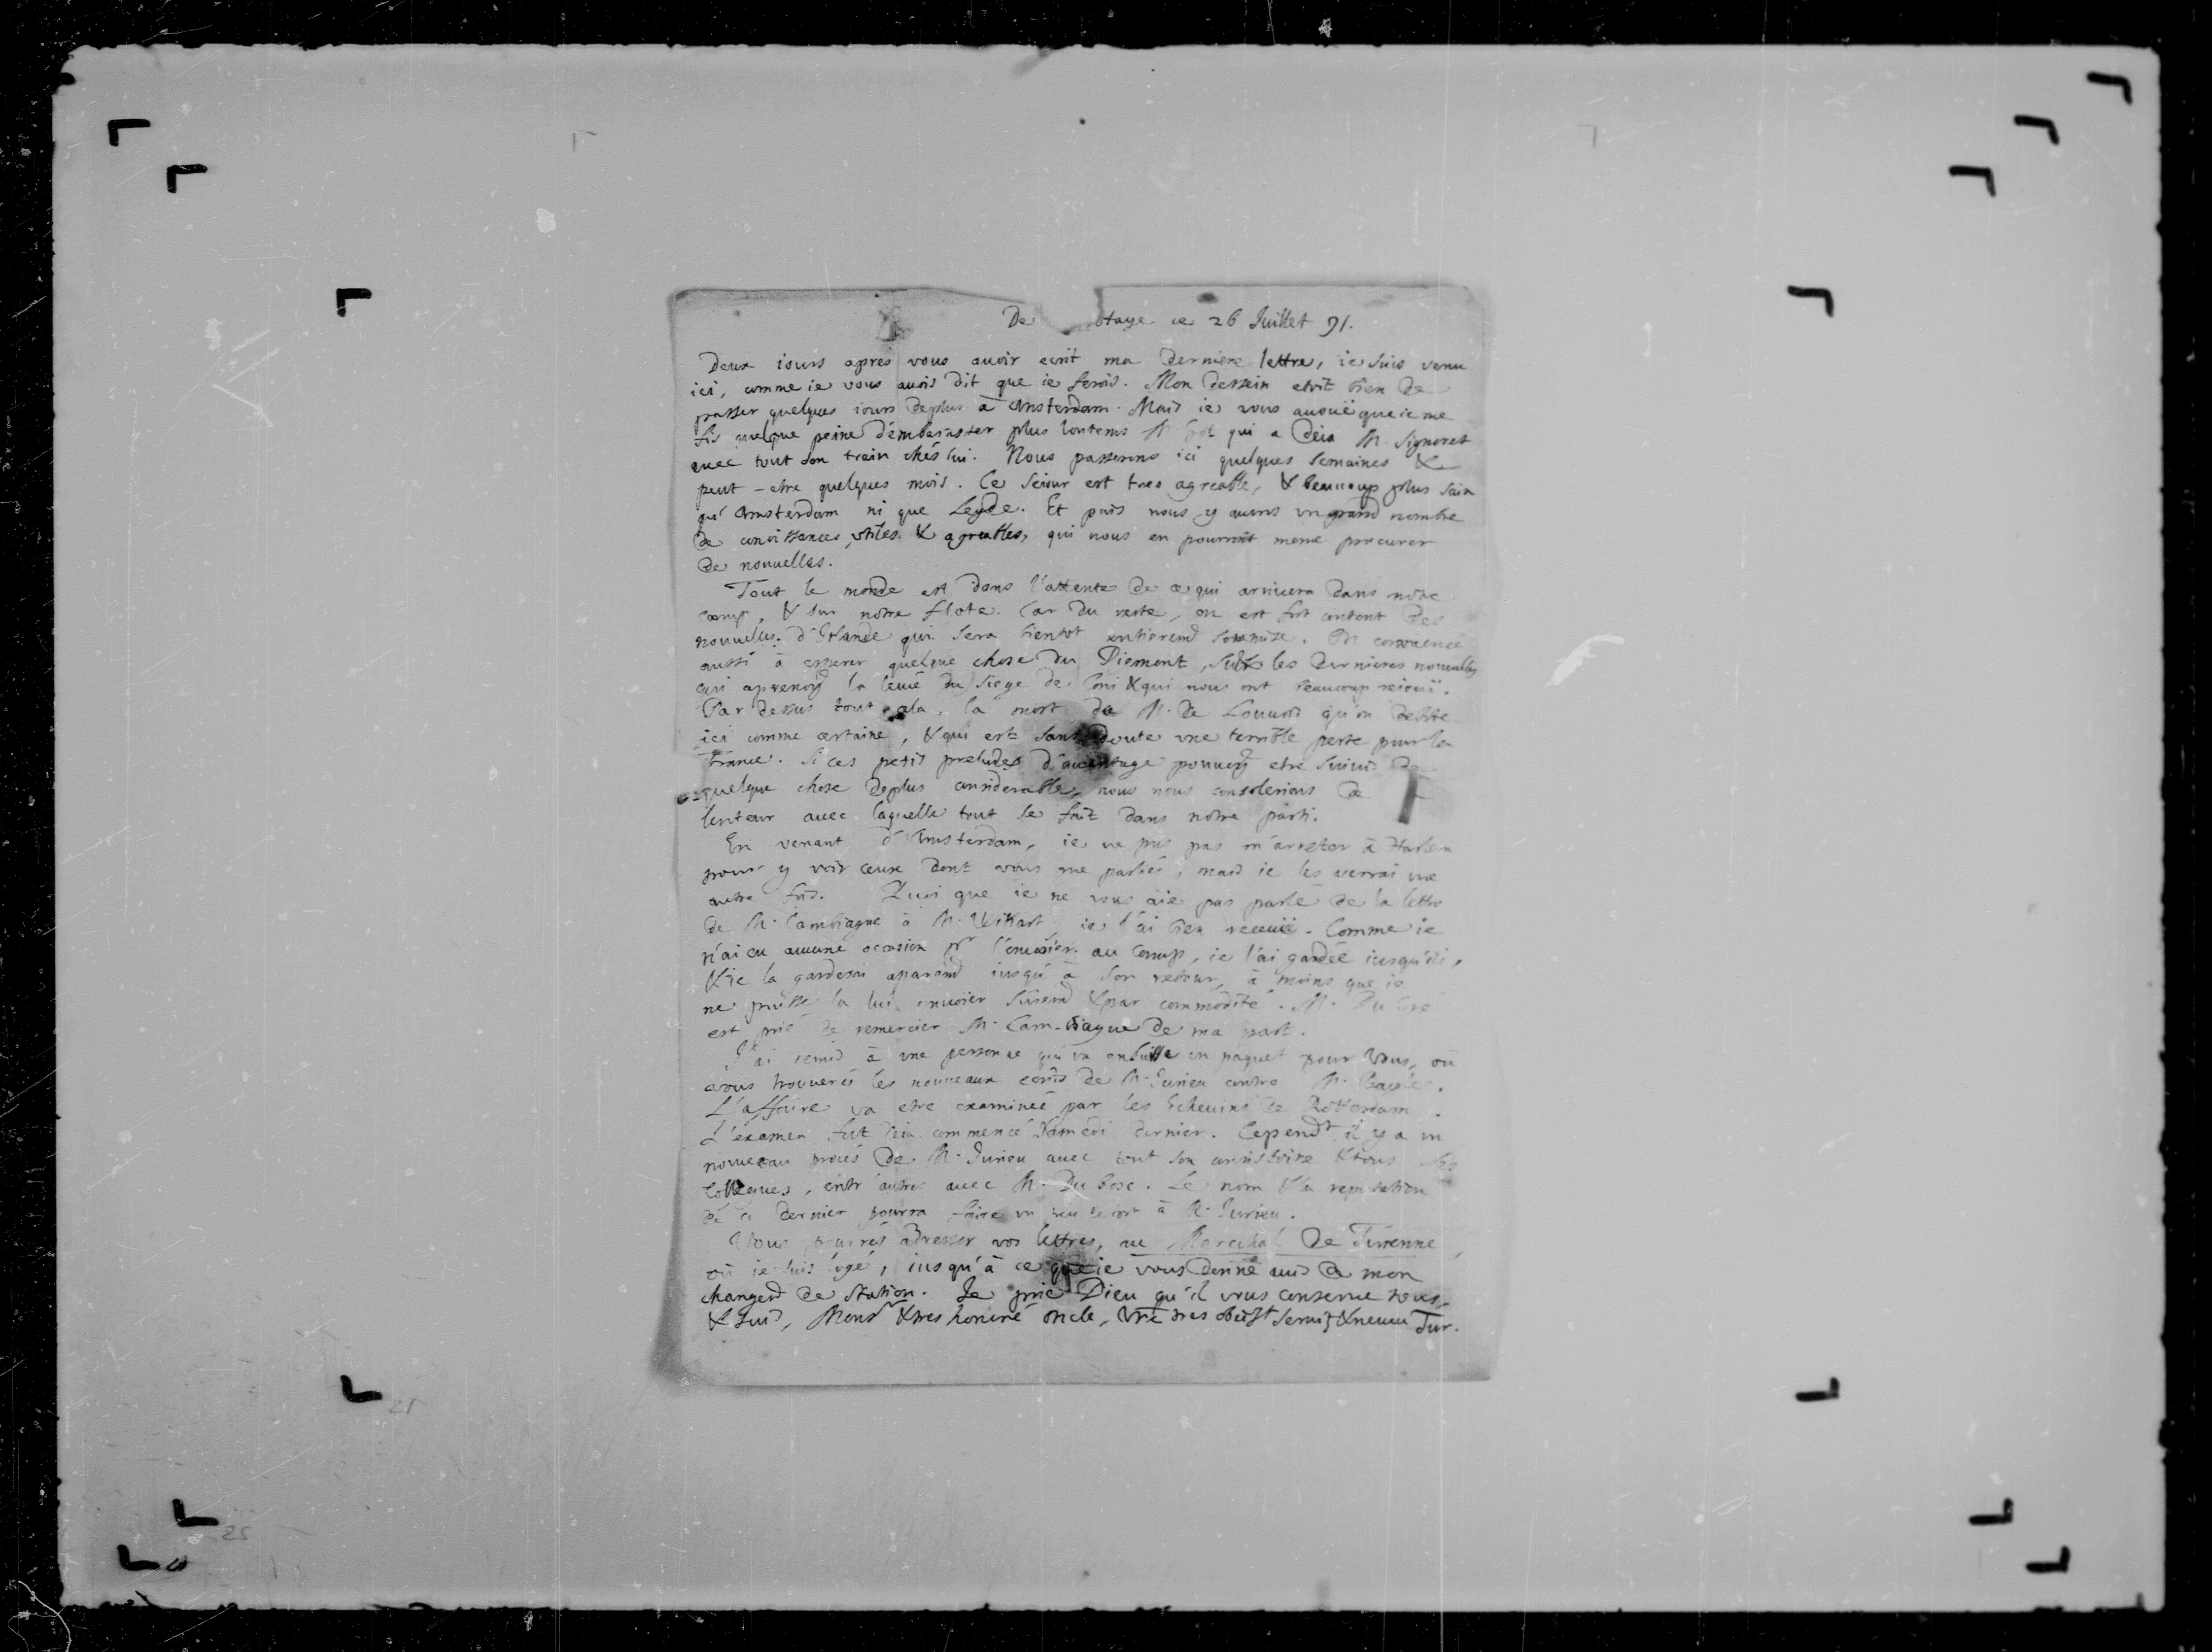 De Haye ce 26 Juillet 91.
Deux iours apres vous auoir ecrit ma derniere lettre, ie suis venu
ici, comme ie vous auois dit que ie ferois. Mon dessein etoit bien de
passer quelques iours de plus à Amsterdam. Mais ie vous auouë que ie me
fis quelque peine d'embarasser plus lontems M. qui a deia M. Signoret
auec tout son train chés lui. Nous passerons ici quelques semaines &
peut-etre quelques mois. Ce seiour est tres agreable, & beaucoup plus sain
qu'Amsterdam ni que Leyde. Et puis nous y auons un grand nombre
de conoissances utiles & agreables, qui nous en pourront meme procurer
de nouuelles.
Tout le monde est dans l'attente de ce qui arriuera dans notre
camp, & sur notre flote. Car du reste, on est fort content des
nouuelles d'Irlande qui sera bientot entierem.t soumise. On commence
aussi à esperer quelque chose du Piemont, les dernieres nouuelles
la leuée du siege de Coni & qui nous ont beaucoup reiouï.
Par dessus tout cela, la mort de M. de Louuois qu'on debite
ici comme certaine, & qui est sans doute une terrible perte pour la
France. Si ces petis preludes d'auantage etre suiuis de
quelque chose de plus considerable, nous nous consolerions de
lenteur auec laquelle tout se fait dans notre parti.
En venant d'Amsterdam, ie ne pus pas m'arreter à Harlem
pour y voir ceux dont vous me parlies, mais ie les verrai une
autre fois. Quoi que ie ne vous aie pas parlé de la lettre
de M. Cambiague à M. ie l'ai bien receuë. Comme ie
n'ai eu aucune occasion pr l'enuoier au camp, ie l'ai gardée iusqu'ici,
& ie la garderai iusqu'à son retour, à moins que ie
ne puisse la lui enuoier surem.t & par commodité. M. Du
est prié de remercier M. Cambiague de ma part.
J'ai remis à une personne qui va en Suisse un paquet pour vous, où
vous trouuerés les nouueaux ecrits de M. Jurieu contre M. Bayle.
L'affaire va etre examinée par les Echeuins de Rotterdam.
L'examen fut deia commencé Samedi dernier. Cepend.t il y a un
nouueau procés de M. Jurieu auec tout son consistoire & tous ses
collegues, entr'autres auec M. Du Bosc. Le nom & la reputation
de ce dernier pourra faire un peu de tort à M. Jurieu.
Vous pourrés adresser vos lettres, au Marechal de Turenne,
où ie suis logé, iusqu'à ce que ie vous donne auis de mon
changem.t de station. Je prie Dieu qu'il vous conserue tous,
& suis, Monsr & tres honoré oncle, vre tres obeist seruit. & neueu Tur.
21
25